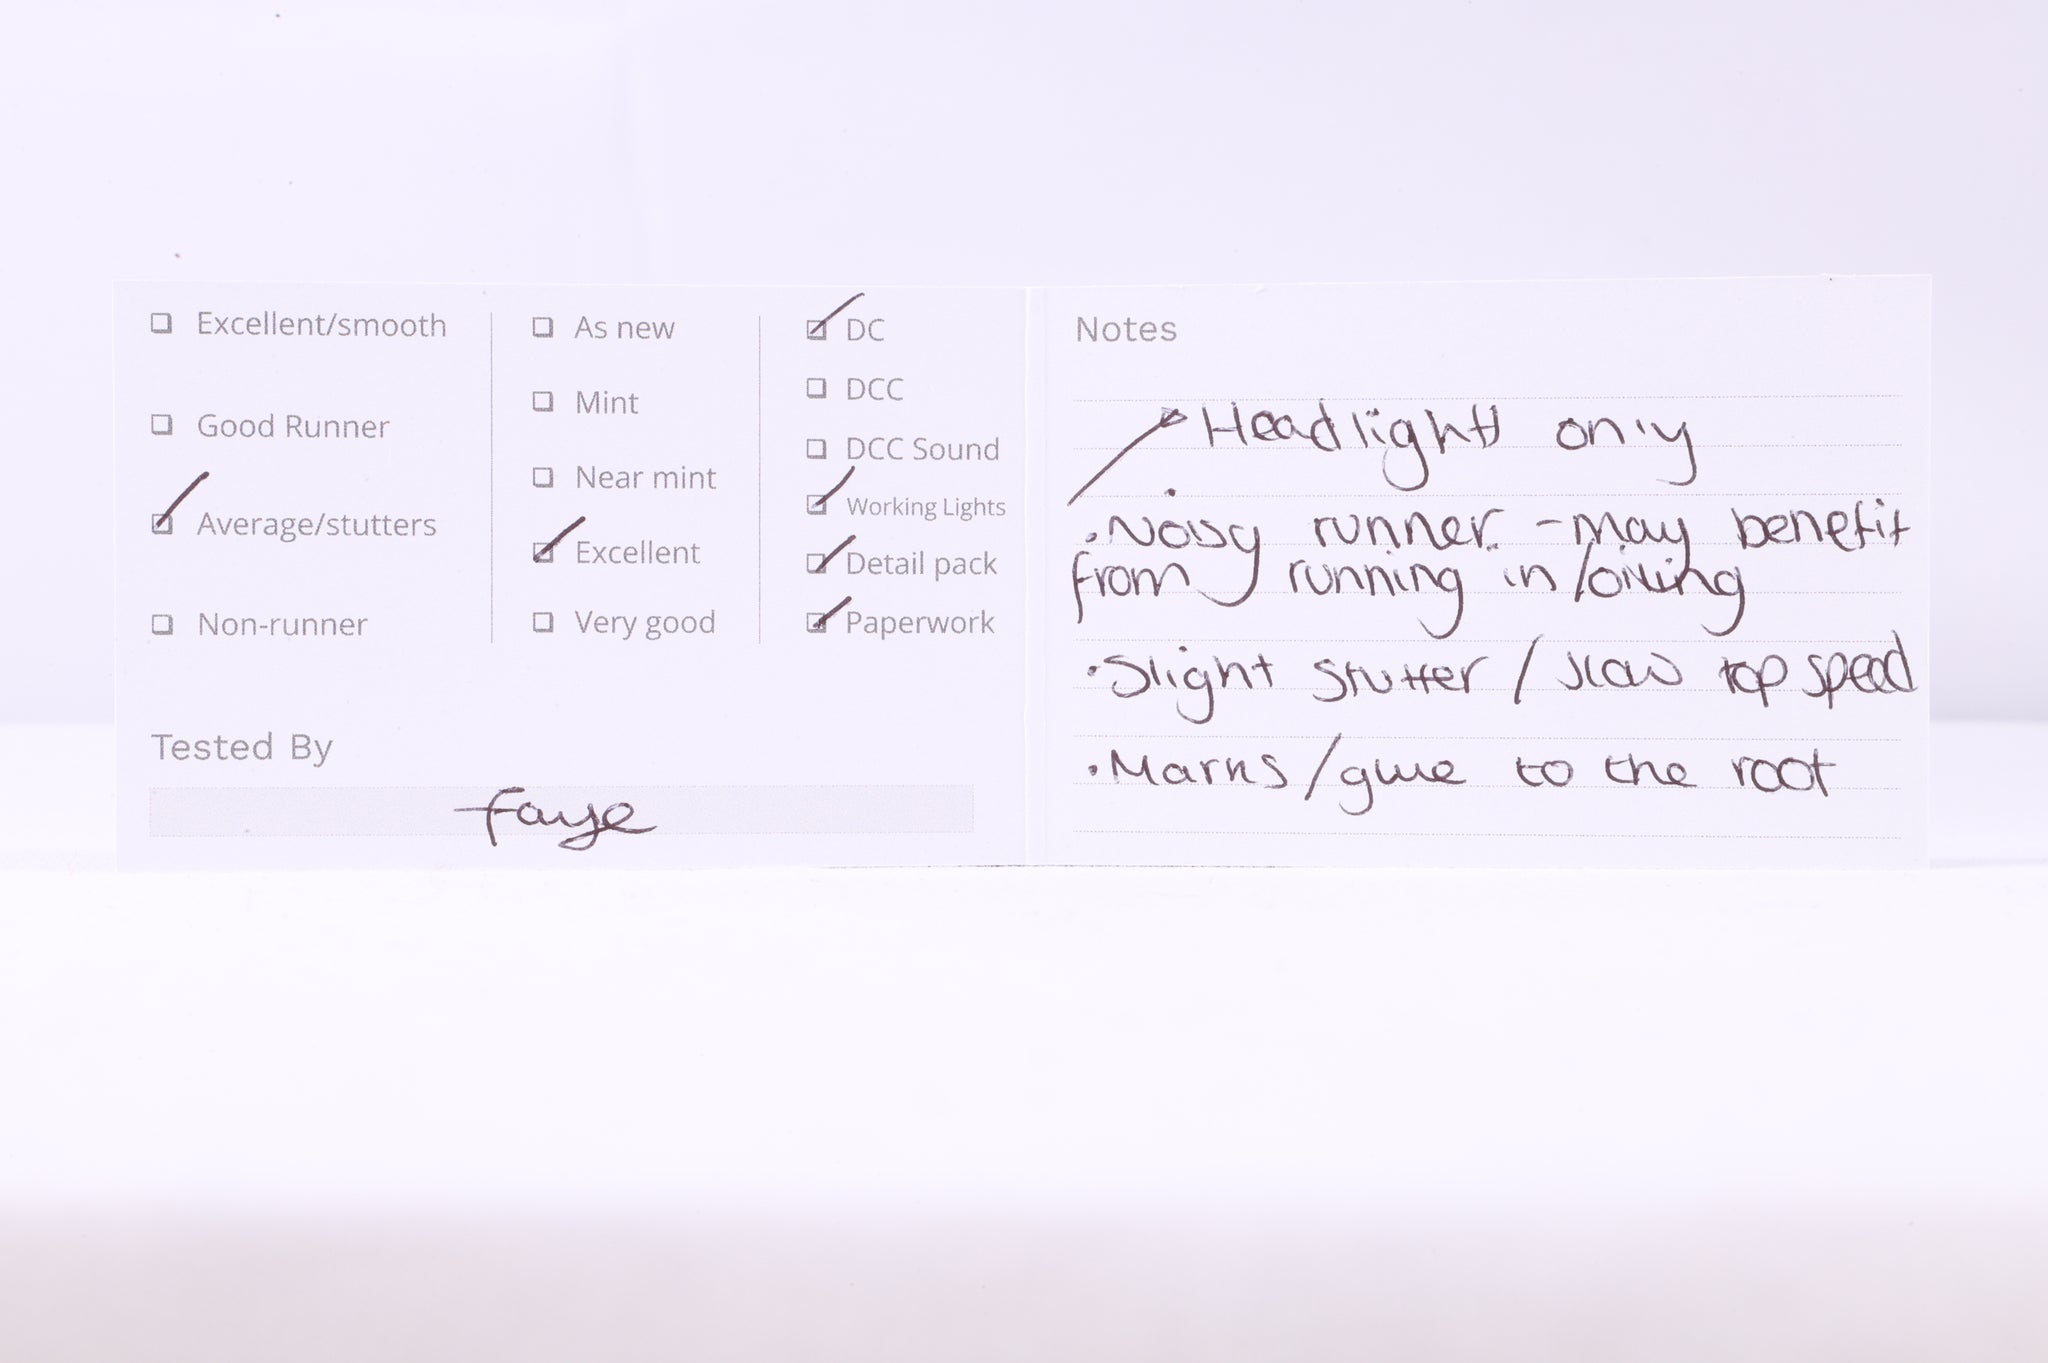 Excellent/smooth
Good Runner
Average/stutters
Non-runner
As new
Mint
Near mint
Excellent
Very good
DC
DCC
DCC Sound
Working Lights
Detail pack
Paperwork
Tested By
Faye
Notes
Headlight only
• Noisy runner - may benefit
from running in/oiling
• Slight stutter / slow top speed
• Marks/glue to the roof